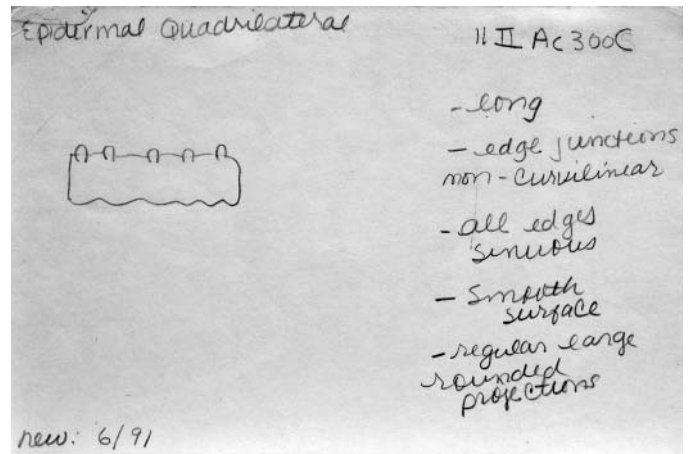 Epidermal Quadrilateral
11 II Ac 300C
- long
- edge junctions
non-curvilinear
- all edges
sinuous
- smooth
surface
- regular large
rounded
projections
new: 6/91